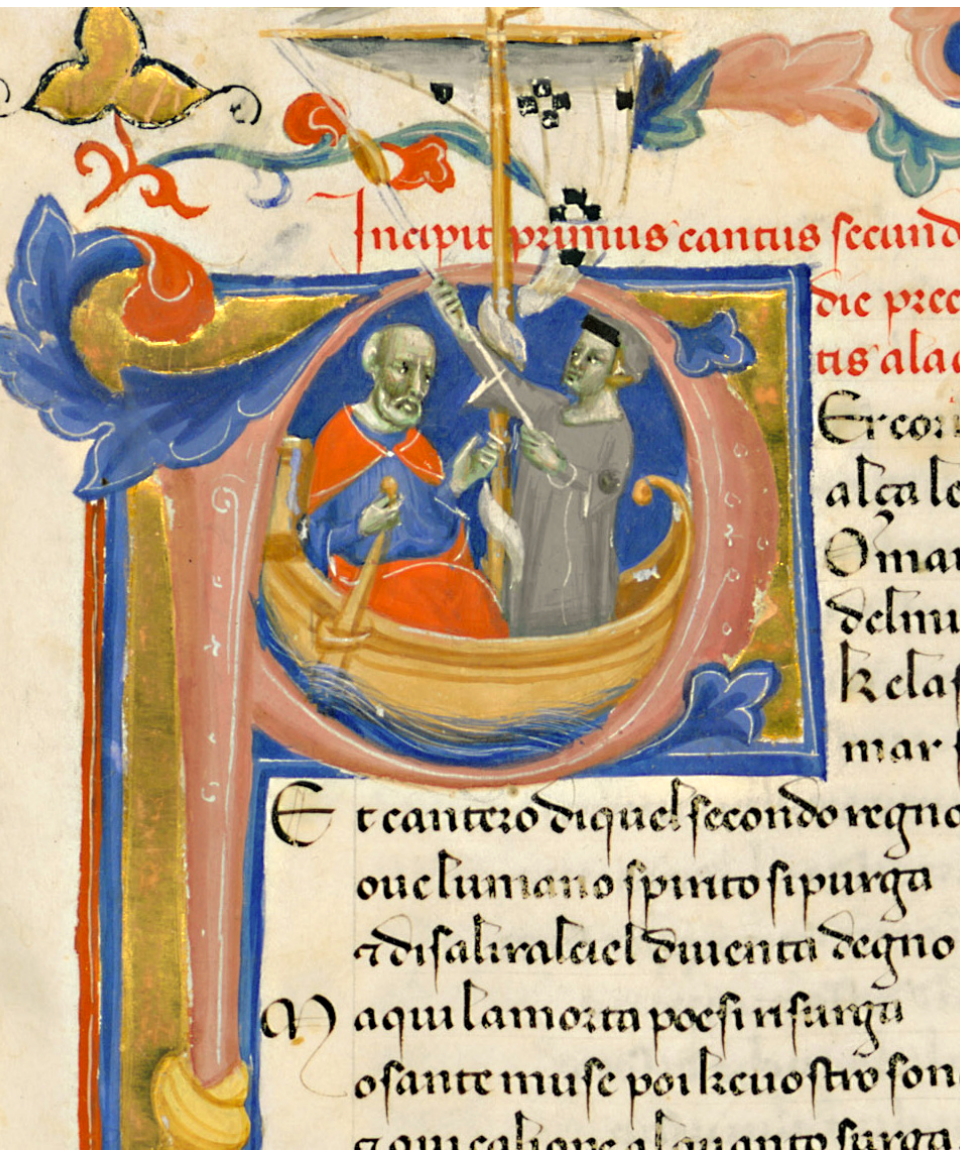 Incipit primus cantus secund
die prec
tis alac
Er cor
alça le
O mar
del mi
k e las
mar s
Et cantero di quel secondo regno
oue lumano spirito si purga
⁊ di salir al ciel diuenta degno
Ma qui la morta poesi risurga
o sante muse poi ke uostro son
⁊ qui caliope alquanto surga